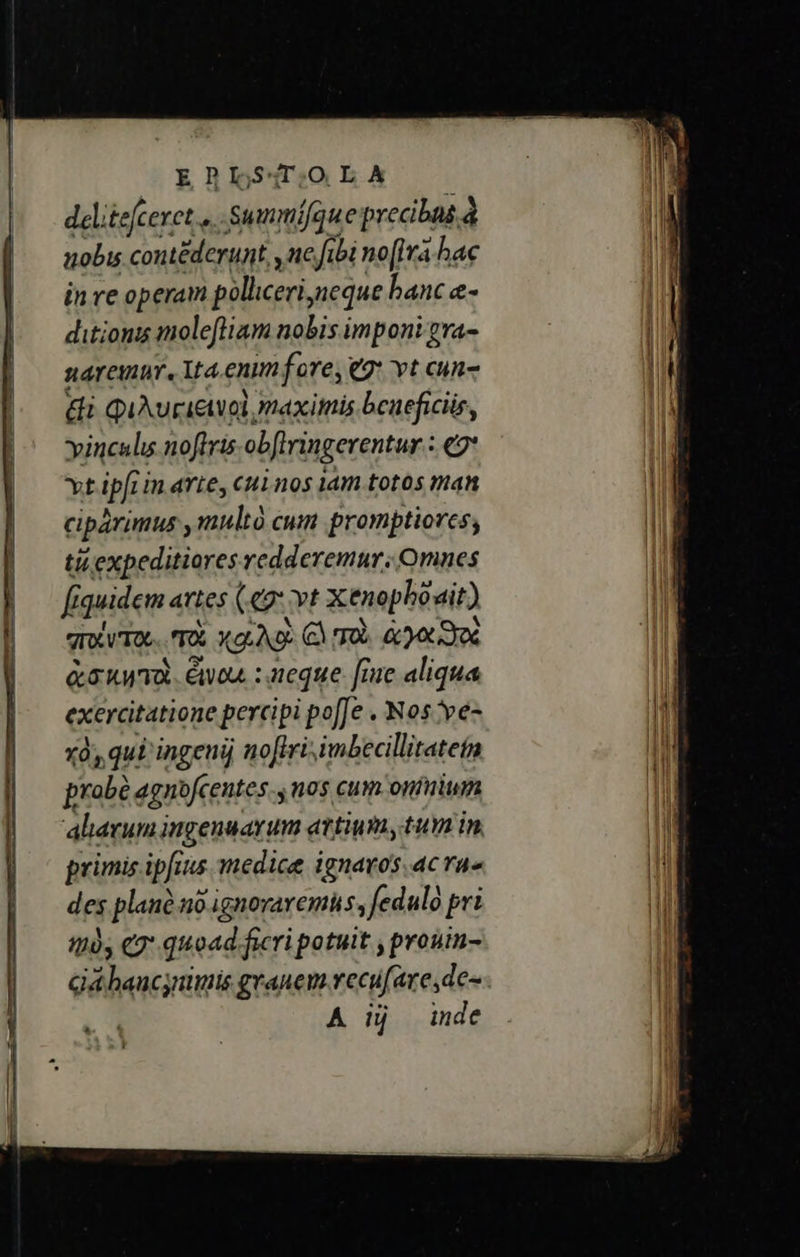 EPISTOLA
delitesceret. Summisque precibus à
nobis contēderunt, ne sibi nostrā hac
in re operam polliceri, neque hanc e-
ditionis molestiam nobis imponi gra-
uaremur. Ita enim fore, & vt cun-
cti φιλυγιεινοὶ maximis beneficiis,
vinculis nostris obstringerentur: &
vt ipsi in arte, cui nos iam totos man
cipârimus, multò cum promptiores,
tū expeditiores redderemur. Omnes
siquidem artes (& vt Xenophō ait)
πάντα τὰ καλὰ καὶ τὰ ἀγαθὰ
ἀσκητὰ εἶναι: neque sine aliqua
exercitatione percipi posse. Nos ve-
rò, qui ingenij nostri imbecillitatem
probè agnoscentes, nos cum omnium
aliarum ingenuarum artium, tum in
primis ipsius medicæ ignaros ac ru-
des planè nō ignoraremus, sedulò pri
mò, & quoad fieri potuit, prouin-
ciā hanc, nimis grauem recusare, de-
A iij inde